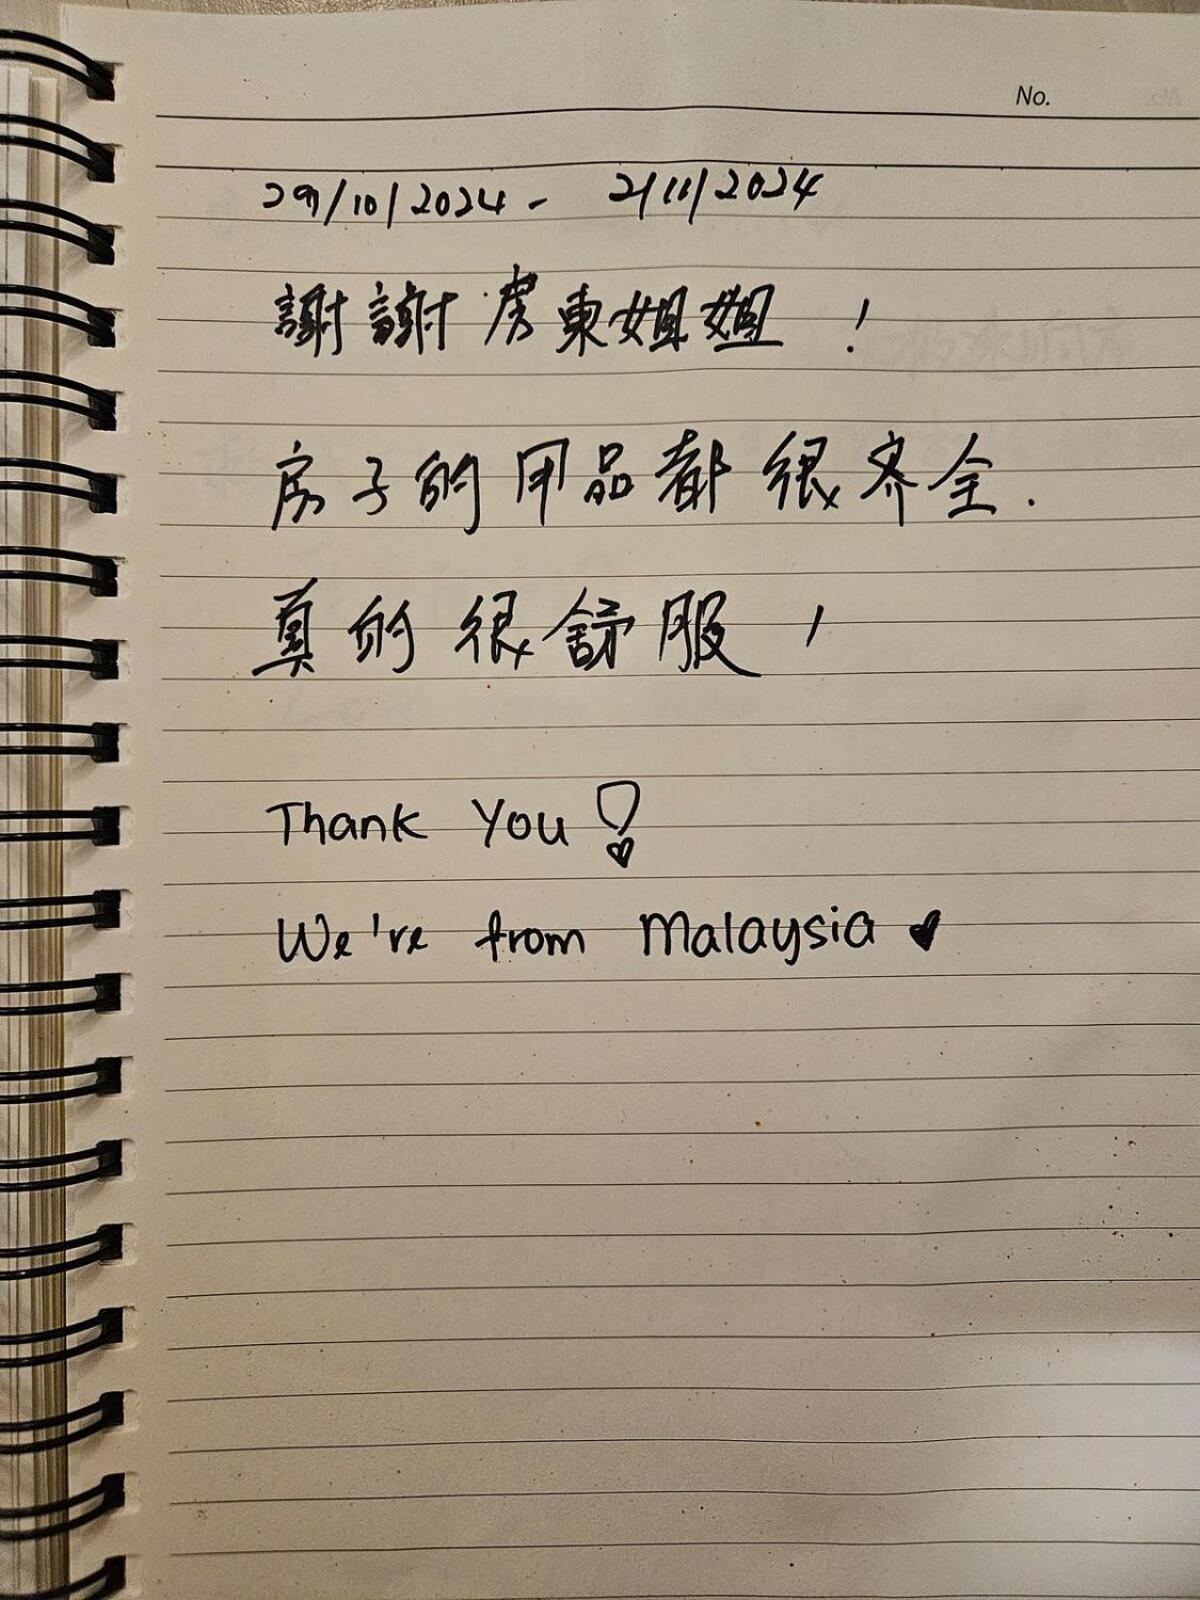 No.
29/10/2024 - 2/11/2024
謝謝房東姐姐!
房子的用品都很齐全.
真的很舒服,
Thank You!
We're from Malaysia